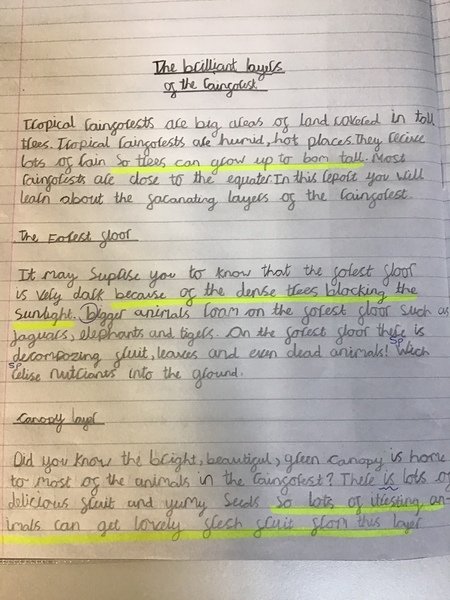 The brilliant layers
of the rainforest
Tropical rainforests are big areas of land covered in tall
trees. Tropical rainforests are humid, hot places. They recive
lots of rain so trees can grow up to 60m tall. Most
rainforests are close to the equater. In this report you will
learn about the facanating layers of the rainforest.
The Forest floor
It may suprise you to know that the forest floor
is very dark because of the dense trees blocking the
sunlight. Bigger animals roam on the forest floor such as
jaguars, elephants and tigers. On the forest floor there is
decomposing fruit, leaves and even dead animals! Wich
sp
sp
relise nutriants into the ground.
Canopy layer
Did you know the bright, beautiful, green canopy is home
to most of the animals in the rainforest? There is lots of
delicious fruit and yumy seeds so lots of intresting an-
imals can get lovely fresh fruit from this layer